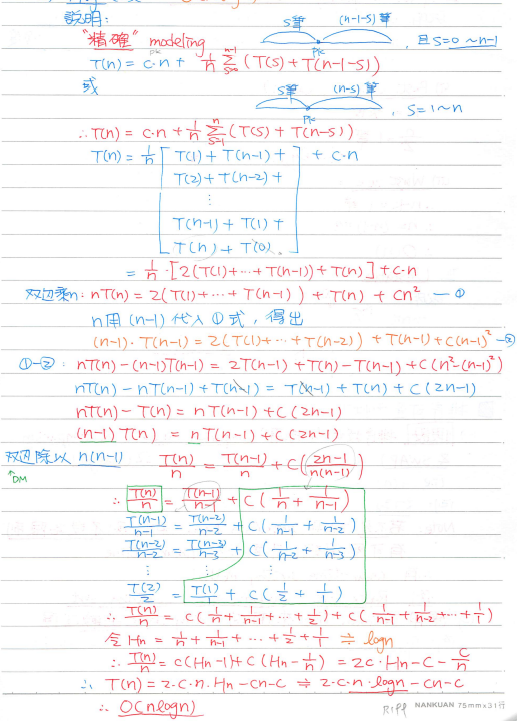 說明:
"精確" modeling
S筆 (n-1-S)筆
pk
, 且 S=0 ~ n-1
T(n) = c·n + 1/n Σ_{S=0}^{n-1} (T(S) + T(n-1-S))
或
S筆 (n-S)筆
pk
, S=1~n
∴ T(n) = c·n + 1/n Σ_{S=1}^{n} (T(S) + T(n-S))
T(n) = 1/n [ T(1) + T(n-1) + ] + c·n
T(2) + T(n-2) +
⋮
T(n-1) + T(1) +
T(n) + T(0)
= 1/n · [2(T(1)+···+T(n-1)) + T(n)] + c·n
双边乘n: nT(n) = 2(T(1)+···+T(n-1)) + T(n) + cn² —①
n用 (n-1) 代入①式, 得出
(n-1)·T(n-1) = 2(T(1)+···+T(n-2)) + T(n-1) + c(n-1)² —②
①-②: nT(n) - (n-1)T(n-1) = 2T(n-1) + T(n) - T(n-1) + c(n²-(n-1)²)
nT(n) - nT(n-1) + T(n-1) = T(n-1) + T(n) + c(2n-1)
nT(n) - T(n) = nT(n-1) + c(2n-1)
(n-1)T(n) = nT(n-1) + c(2n-1)
双边除以 n(n-1) T(n)/n = T(n-1)/(n-1) + c((2n-1)/(n(n-1)))
↑DM
∴ T(n)/n = T(n-1)/(n-1) + c(1/n + 1/(n-1))
T(n-1)/(n-1) = T(n-2)/(n-2) + c(1/(n-1) + 1/(n-2))
T(n-2)/(n-2) = T(n-3)/(n-3) + c(1/(n-2) + 1/(n-3))
⋮ ⋮ ⋮
T(2)/2 = T(1)/1 + c(1/2 + 1/1)
∴ T(n)/n = c(1/n + 1/(n-1) + ··· + 1/2) + c(1/(n-1) + 1/(n-2) + ··· + 1/1)
令 Hn = 1/n + 1/(n-1) + ··· + 1/2 + 1/1 ≑ logn
∴ T(n)/n = c(Hn-1) + c(Hn - 1/n) = 2c·Hn - c - c/n
∴ T(n) = 2·c·n·Hn - cn - c ⇒ 2·c·n·logn - cn - c
∴ O(nlogn)
NANKUAN 75mm x 31行